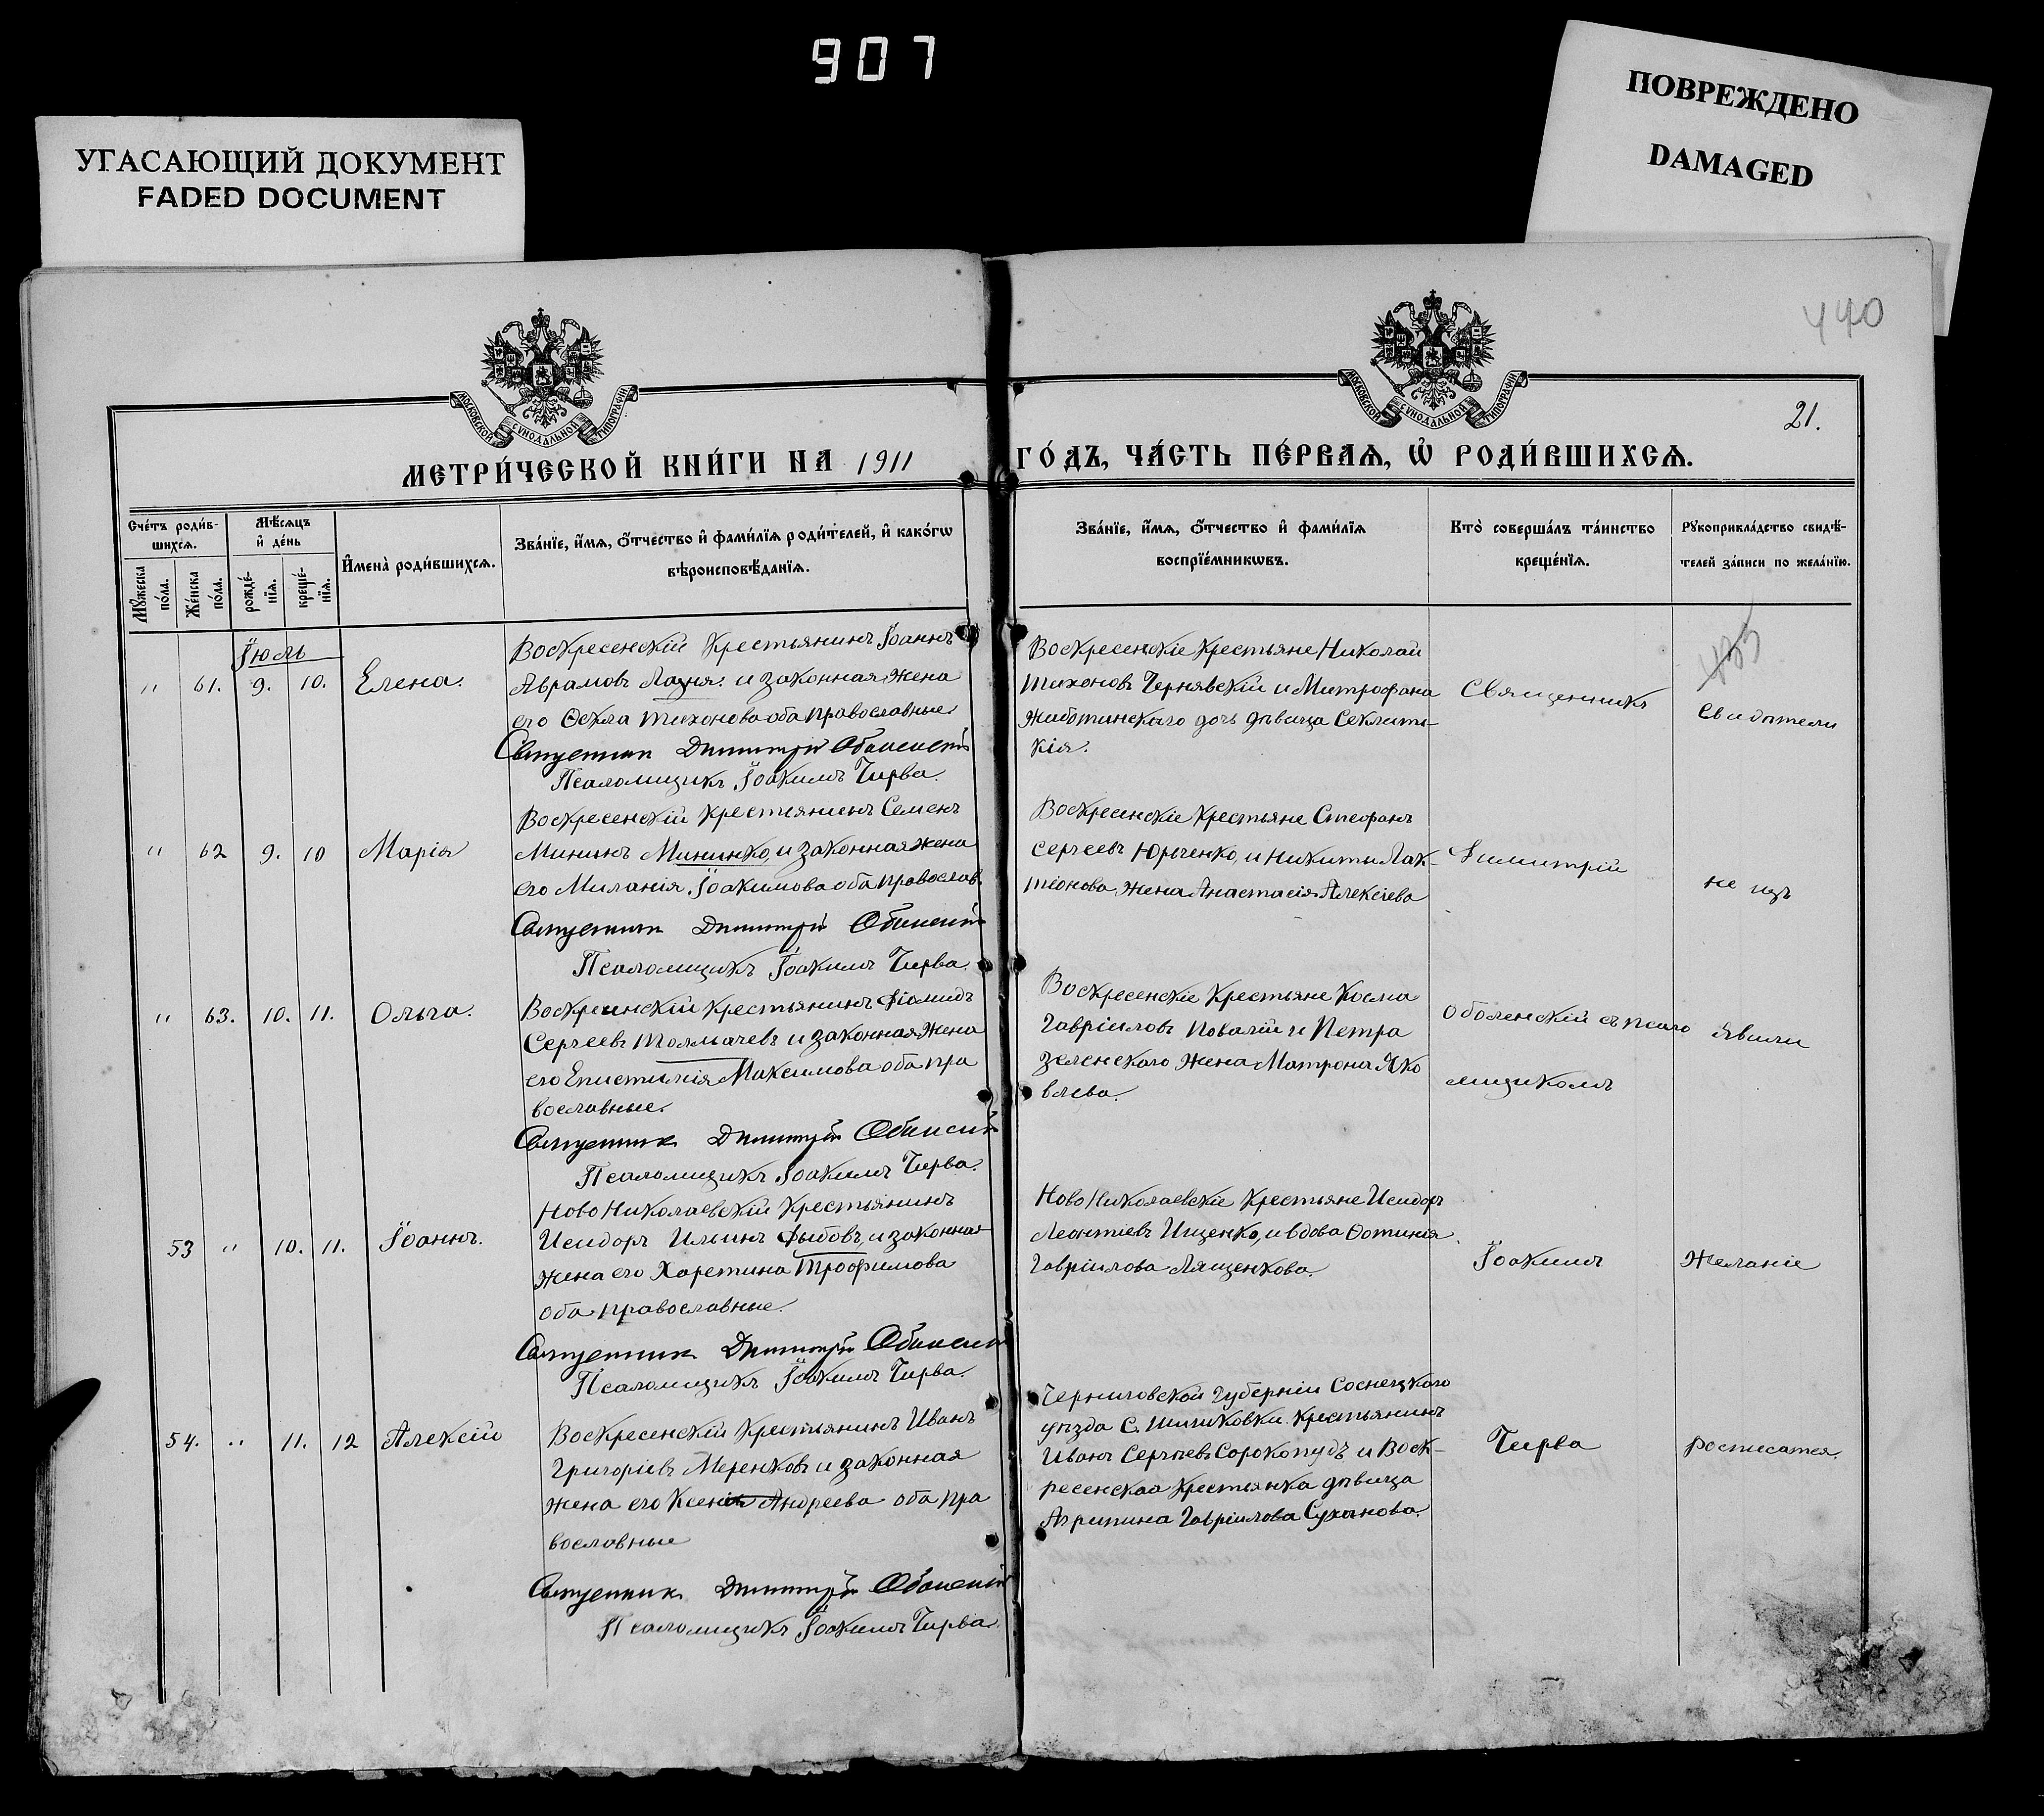 907
ПОВРЕЖДЕНО
DAMAGED
УГАСАЮЩИЙ ДОКУМЕНТ
FADED DOCUMENT
440
МОСКОВСКОЙ СУНОДАЛЬНОЙ ТИПОГРАФІИ
МОСКОВСКОЙ СУНОДАЛЬНОЙ ТИПОГРАФІИ
21.
МЕТРИ́ЧЕСКОЙ КНИ́ГИ НА 1911
ГО́ДЪ, ЧА́СТЬ ПЕ́РВАѦ, Ѡ҆ РОДИ́ВШИХСѦ.
Сче́тъ роди́в-
шихсѧ.
Мѣ́сѧцъ
и҆ де́нь
Мꙋ́жеска
по́ла.
Же́нска
по́ла.
рожде́-
нїѧ.
креще́-
нїѧ.
И҆мена̀ роди́вшихсѧ.
Зва́нїе, и҆́мѧ, ѻ҆́тчество и҆ фами́лїѧ роди́телей, и҆ како́гѡ
вѣроисповѣ́данїѧ.
Зва́нїе, и҆́мѧ, ѻ҆́тчество и҆ фами́лїѧ
воспрїе́мникѡвъ.
Кто̀ соверша́лъ та́инство
креще́нїѧ.
Рꙋкоприкла́дство свидѣ́-
телей за́писи по жела́нїю.
Іюль
" 61. 9. 10. Елена.
Воскресенскій крестьянинъ Іоаннъ
Аврамовъ Лазня. и законная жена
его Ѳекла Тихонова оба православные
Священник Димитрій Оболенскій
Псаломщикъ Іоакимъ Чирва.
Воскресенскіе крестьяне Николай
Тихоновъ Чернявскій и Митрофана
Животинскаго дочь дѣвица Секлити-
кія.
Священникъ
433
Свидѣтели
" 62 9. 10 Марія
Воскресенскій крестьянинъ Семенъ
Мининъ Мининко, и законная жена
его Миланія Іоакимова оба православ.
Священник Димитрій Оболенскій
Псаломщикъ Іоакимъ Чирва.
Воскресенскіе крестьяне Стефанъ
Сергеевъ Юрченко, и Никиты Лак-
тіонова жена Анастасія Алексіева
Димитрій
не изъ
" 63. 10. 11. Ольга.
Воскресенскій крестьянинъ Діомидъ
Сергеевъ Толмачевъ и законная жена
его Епистимія Максимова оба пра
вославные.
Священник Димитрій Оболенскій
Псаломщикъ Іоакимъ Чирва.
Воскресенскіе крестьяне Косма
Гавріиловъ Повалій и Петра
Зеленскаго жена Матрона Яко
влева.
Оболенскій съ псало
мщикомъ
явили
53 " 10. 11. Іоаннъ.
Ново Николаевскій крестьянинъ
Исидоръ Ильинъ Дыбовъ, и законная
жена его Харетина Трофимова
оба православные.
Священник Димитрій Оболенскій
Псаломщикъ Іоакимъ Чирва.
Ново Николаевскіе крестьяне Исидоръ
Леонтіевъ Ищенко, и вдова Фотинія
Гавріилова Лященкова.
Іоакимъ
Желаніе
54. " 11. 12 Алексій
Воскресенскій крестьянинъ Иванъ
Григоріевъ Меренковъ и законная
жена его Ксенія Андреева оба пра
вославные
Священник Димитрій Оболенскій
Псаломщикъ Іоакимъ Чирва
Черниговской губерніи Сосницкаго
уѣзда С. крестьянинъ
Иванъ Сергѣевъ Сорокопудъ и Воск-
ресенская крестьянка дѣвица
Агрипина Гавріилова Суханова.
Чирва
росписатся.